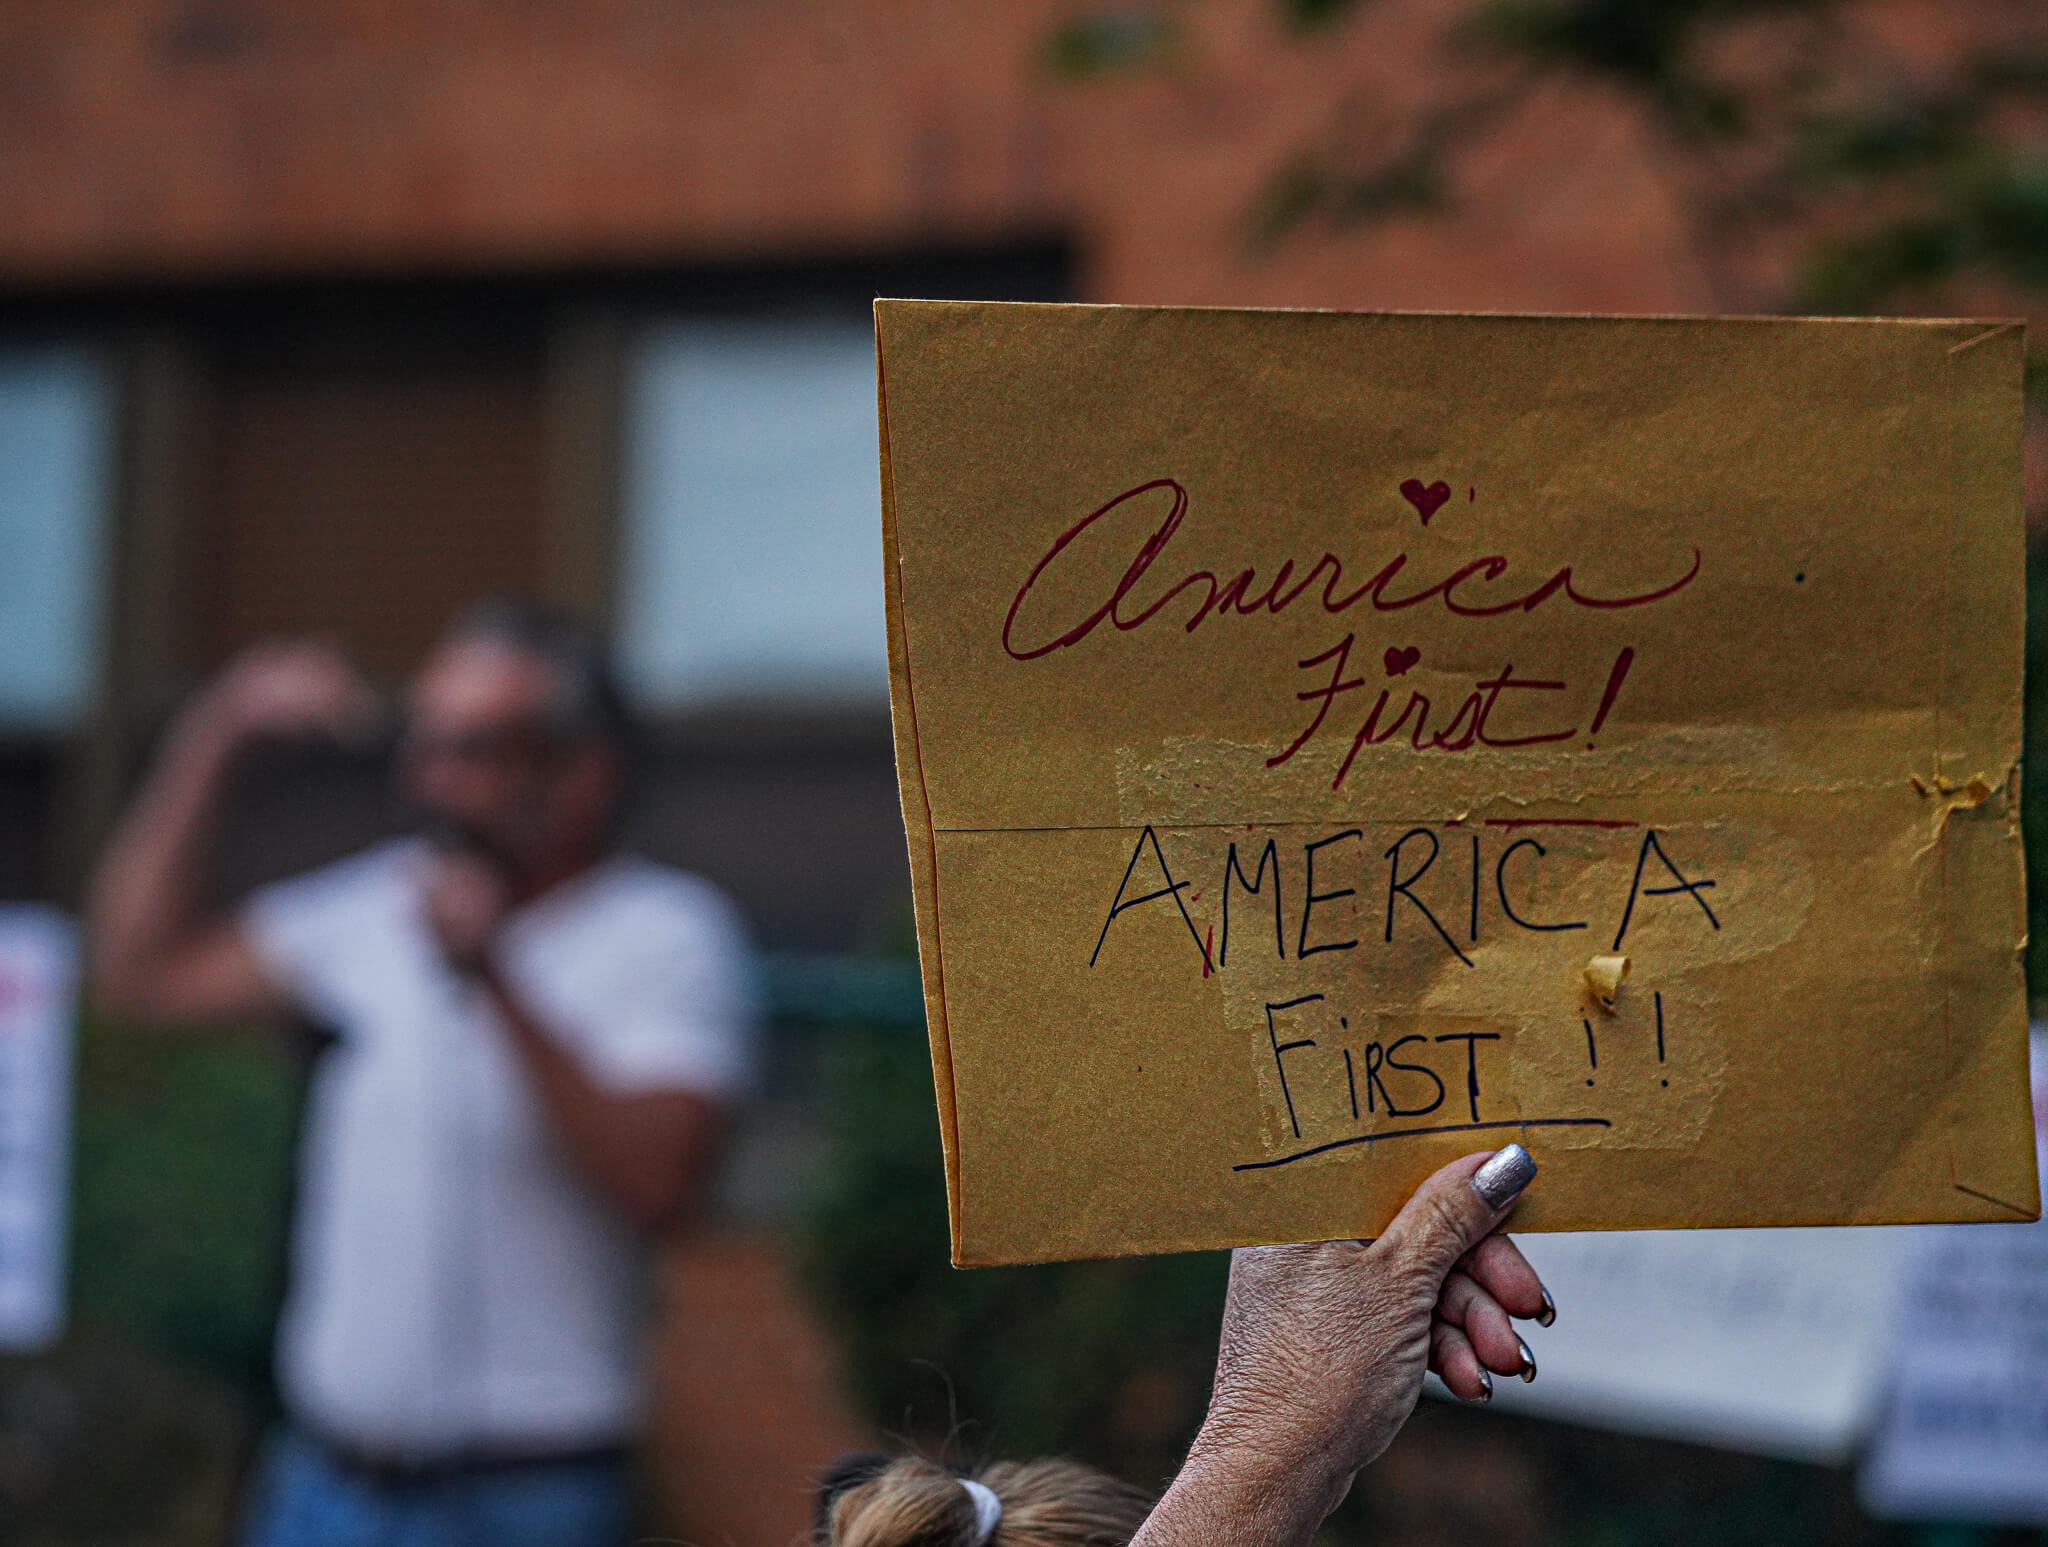 America
First!
AMERICA
FiRST !!